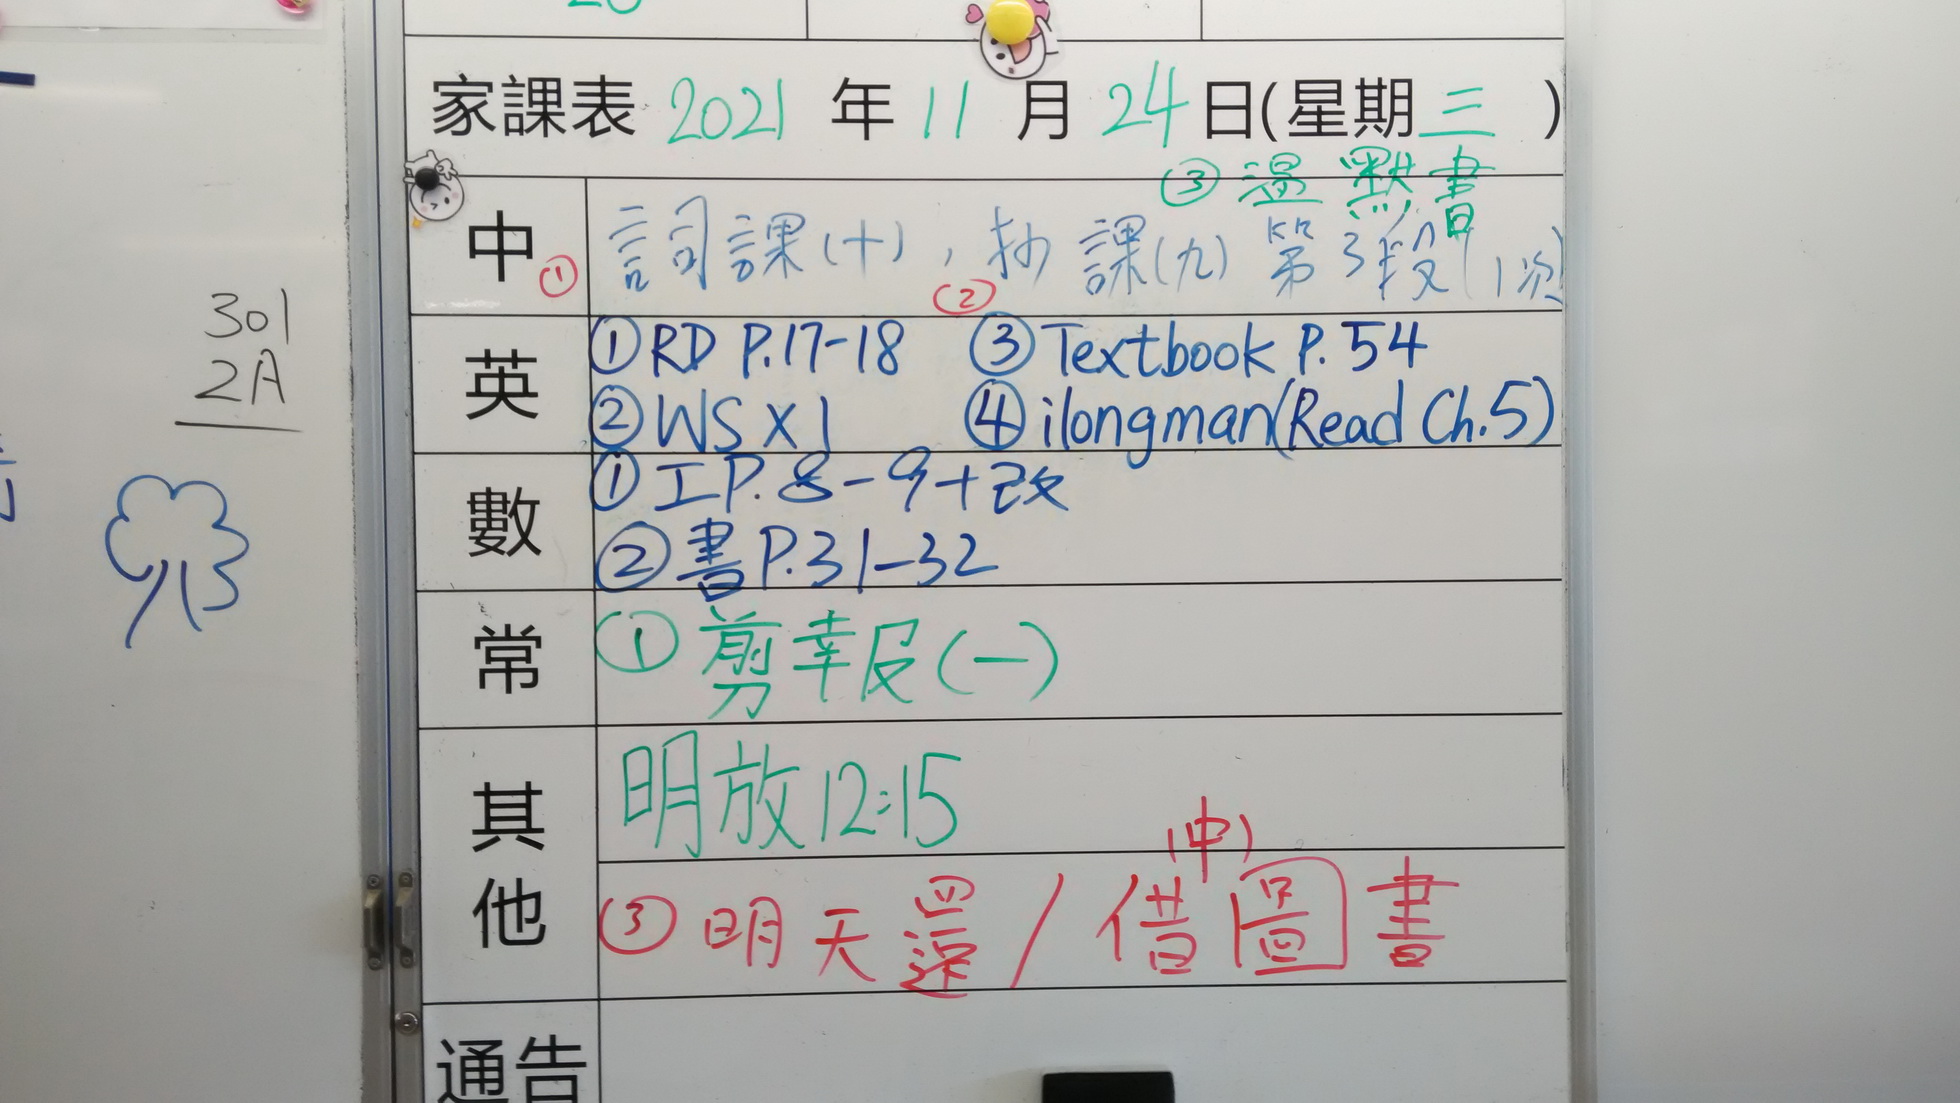 家課表 2021 年 11 月 24 日(星期三 )
③ 溫默書
中 ① 詞課(十), ② 抄課(九)第3段(1次)
英 ① RD P.17-18 ③ Textbook P.54
② WS X 1 ④ ilongman(Read Ch.5)
數 ① 工P.8-9+改
② 書P.31-32
常 ① 剪報(一)
其他 明放12:15
(中)
③ 明天還/借圖書
通告
301
2A